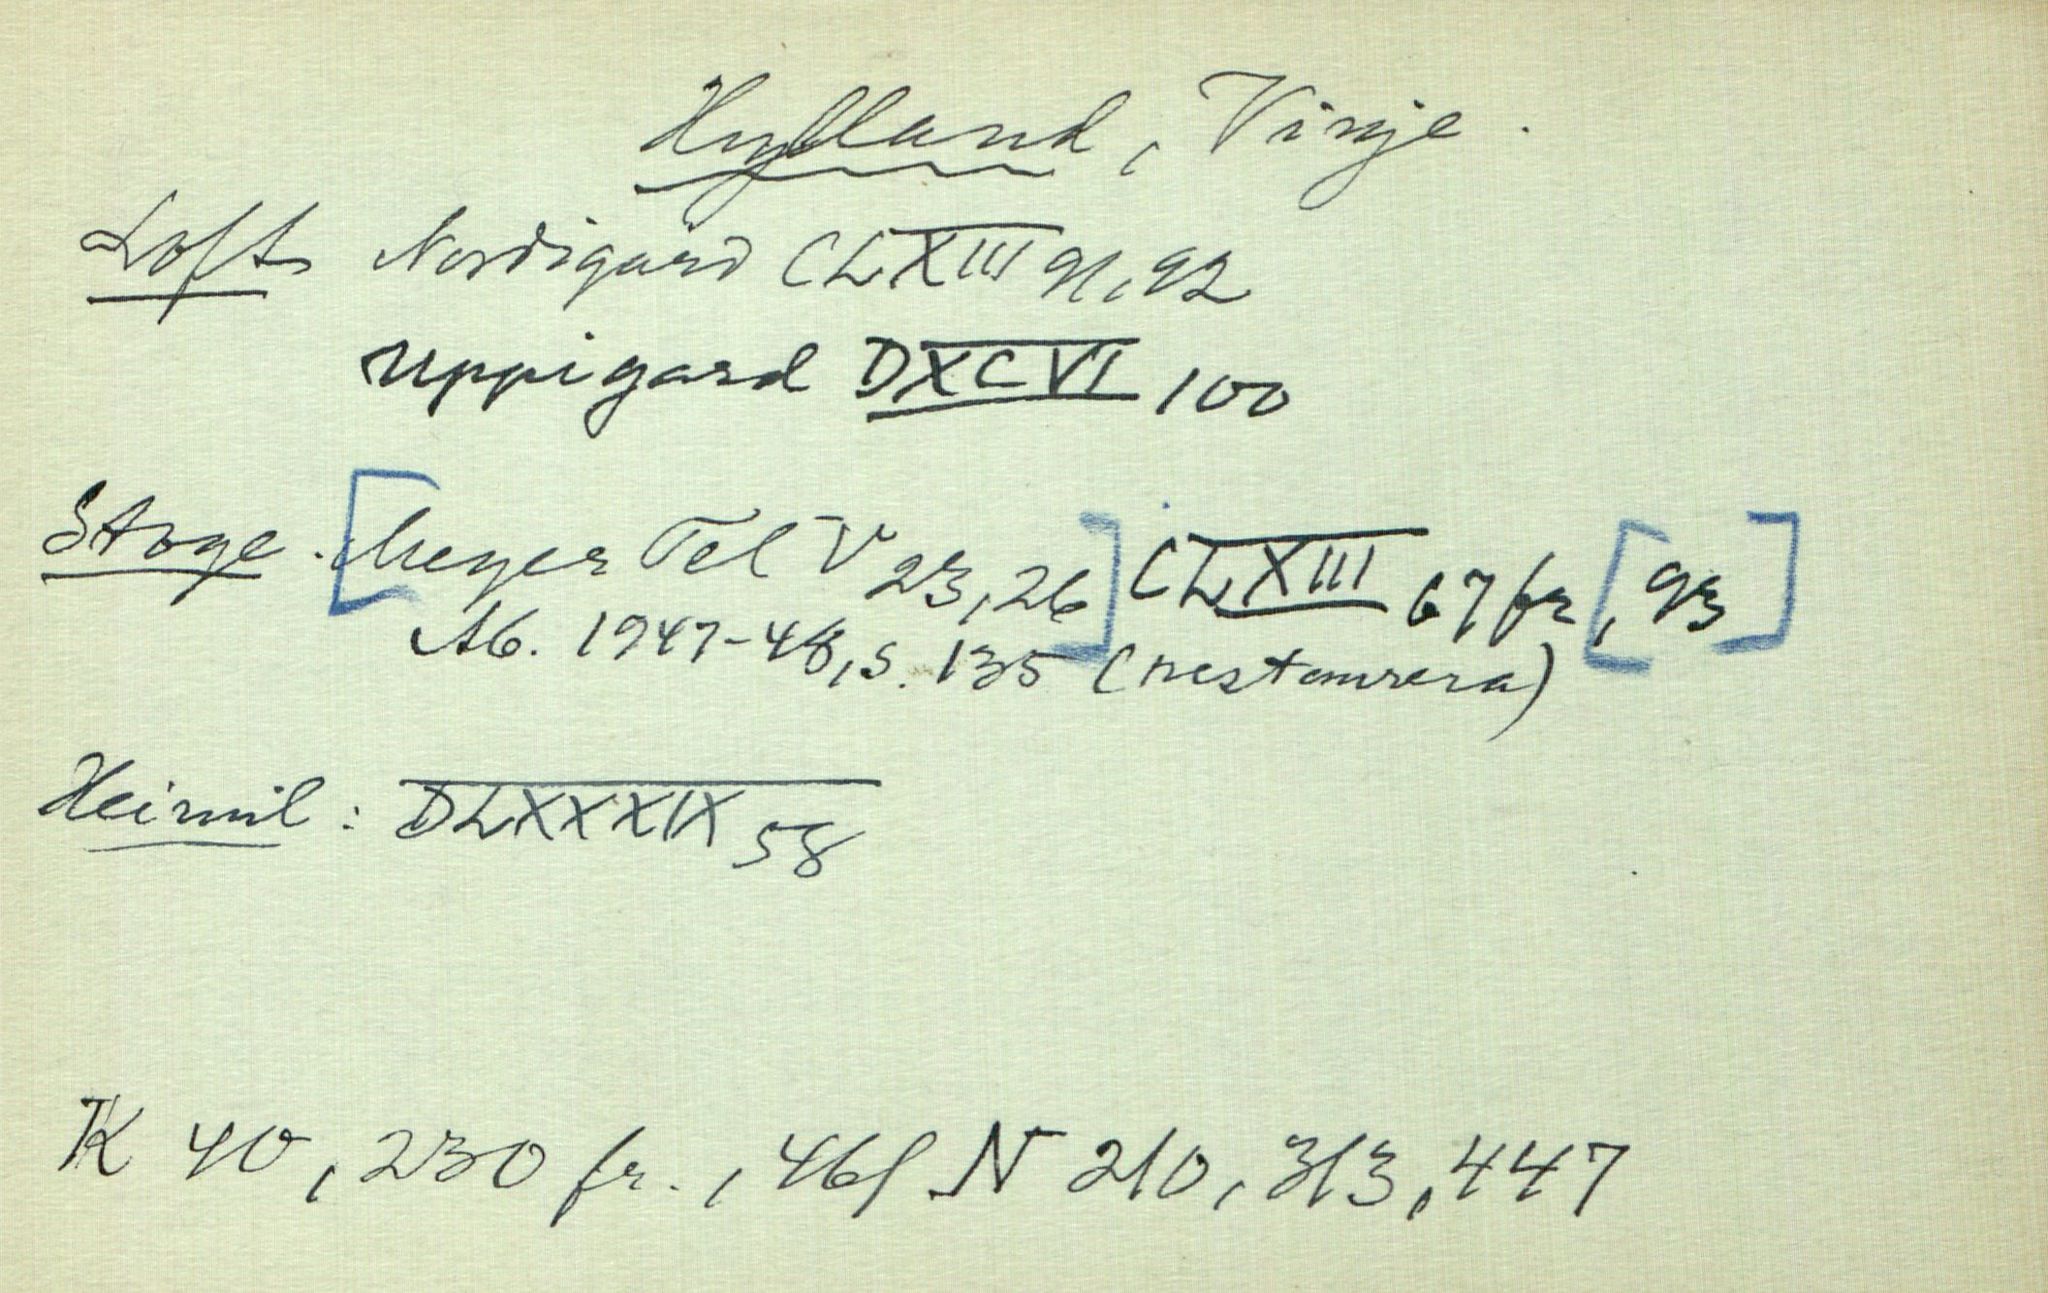 Hylland, Vinje.
Loft Nordigard CLXIII 91, 92
Uppigard DXCVI 100
Stoge. [Meyer Tel V 23, 26] CLXIII 67 fr [, 93]
Ab. 1947-48, s. 135 (restaurera)
Heimil: DLXXXIX 58
K 40, 230 fr., 461 N 210, 313, 447